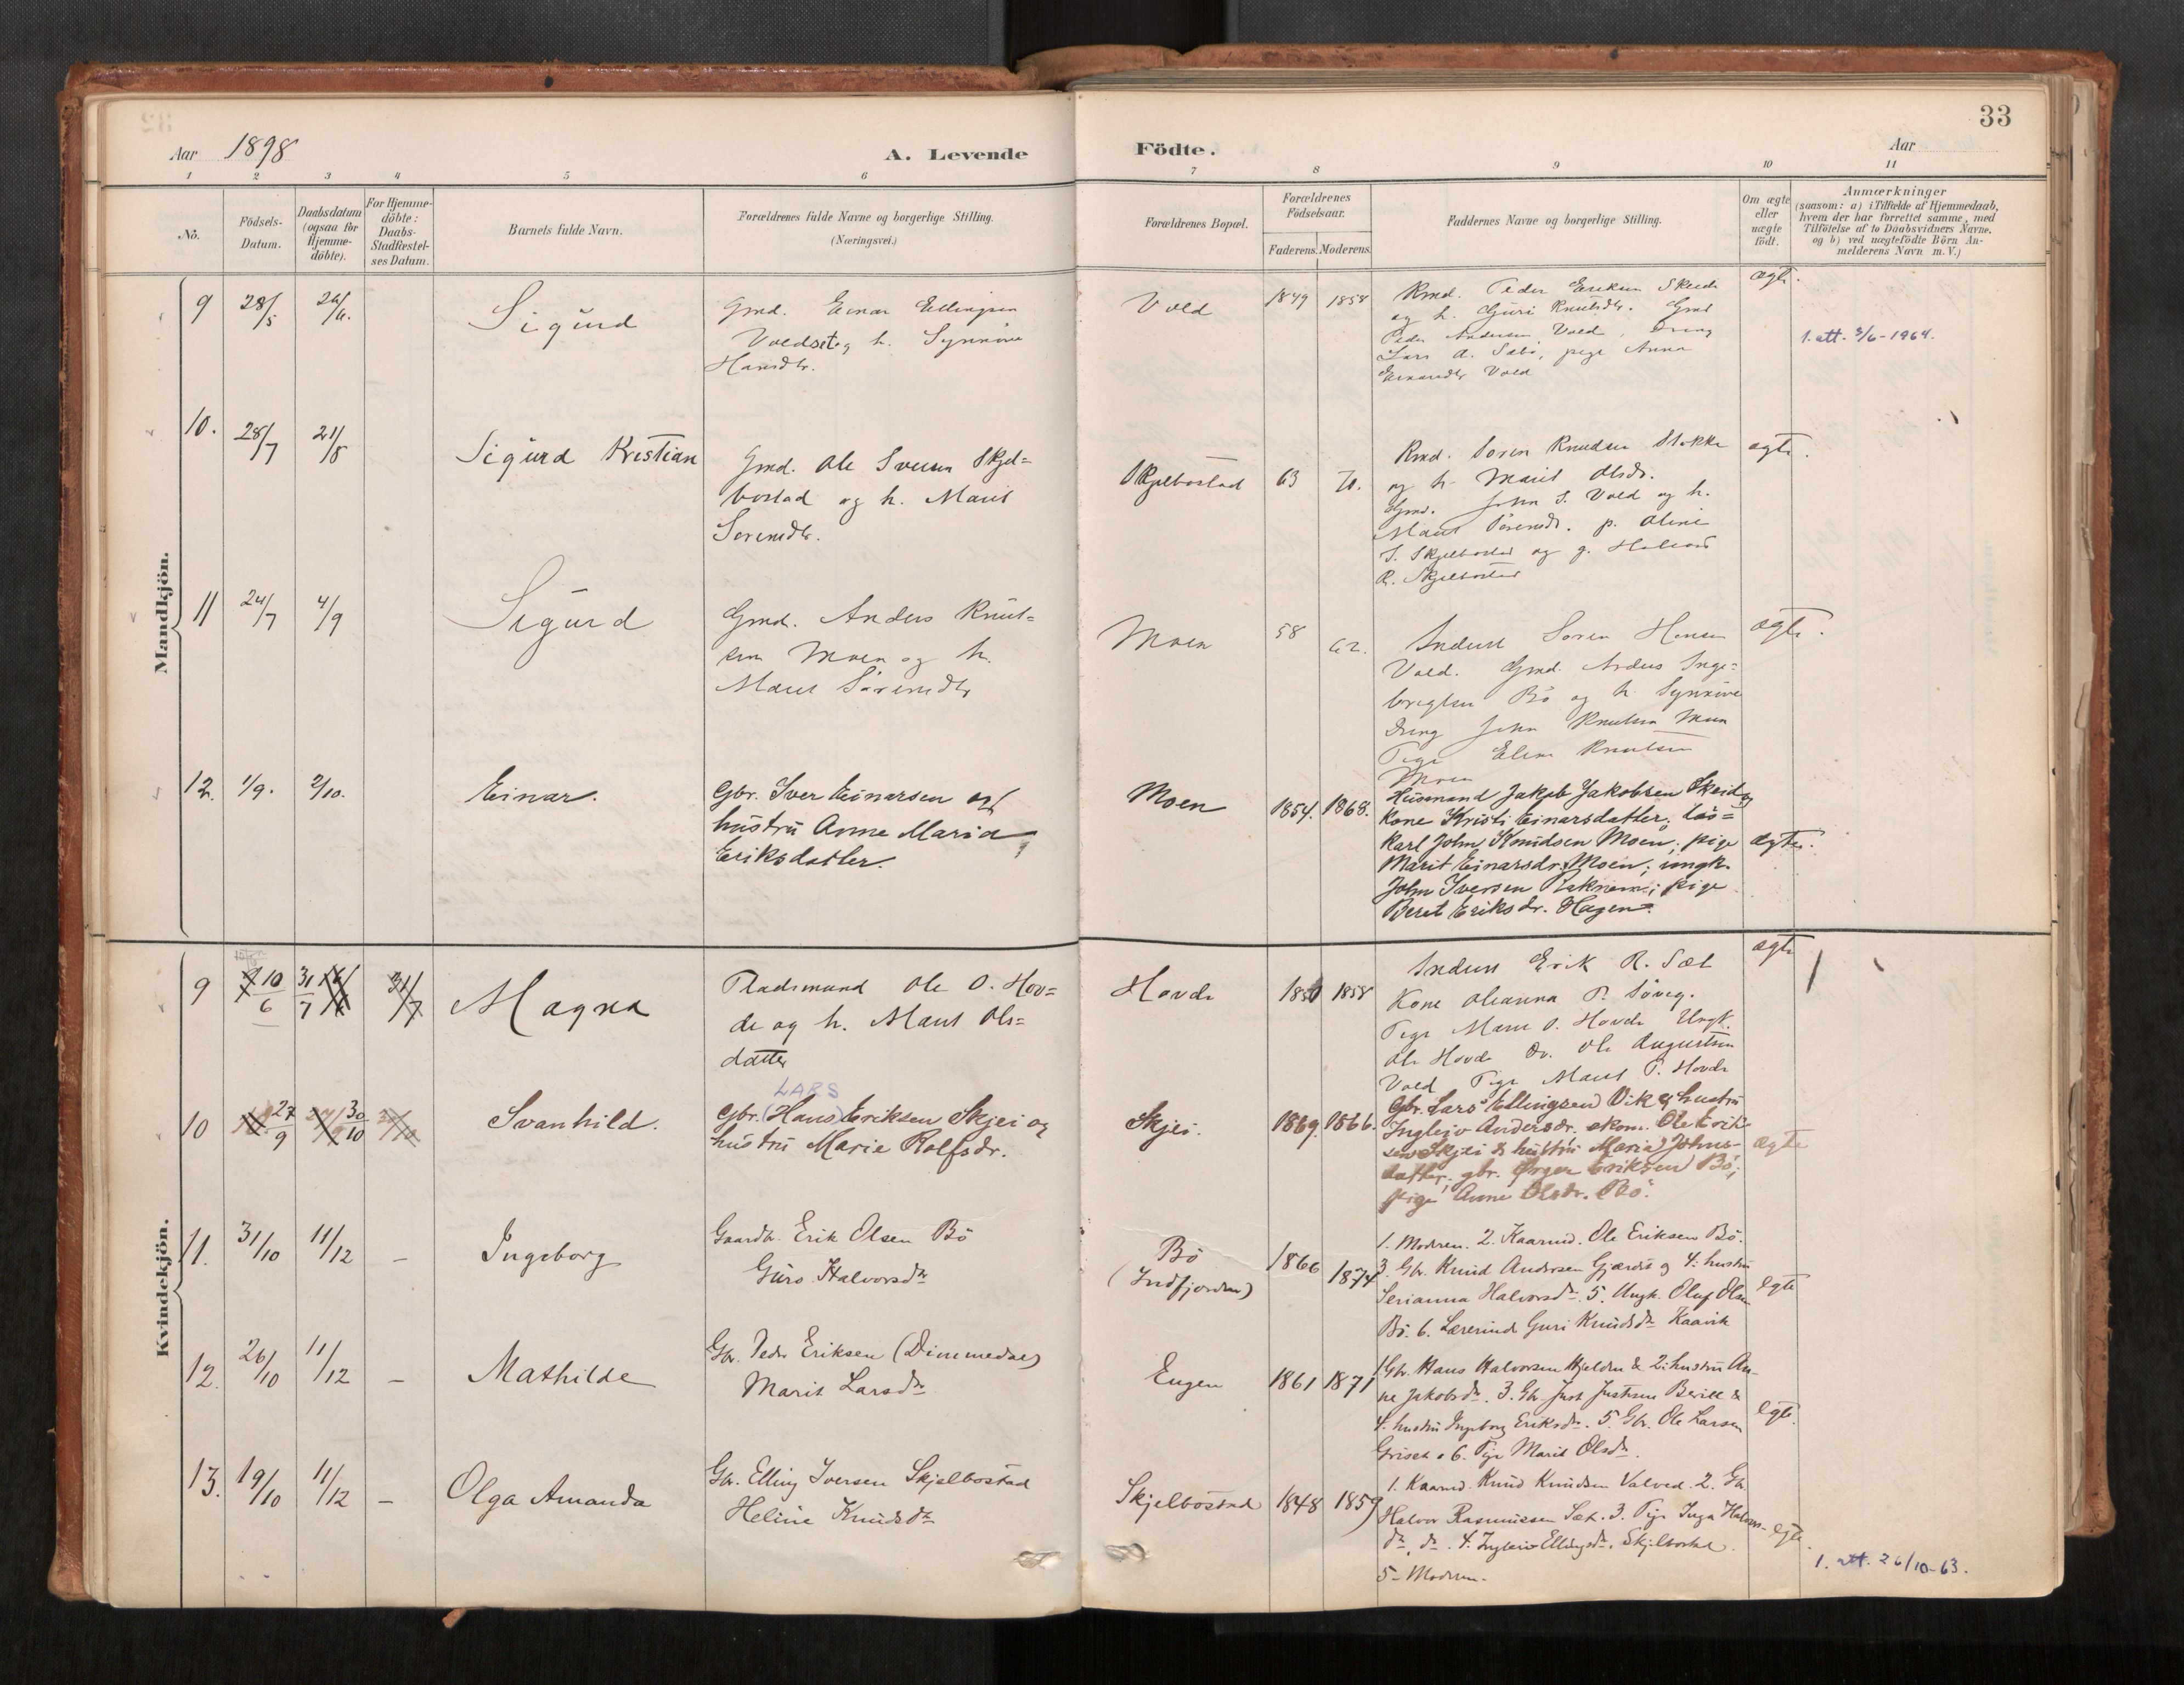 33
Aar 1898
A. Levende
Födte.
Aar
1 2 3 4 5 6 7 8 9 10 11
No.
Födsels-
Datum.
Daabsdatum
(ogsaa for
Hjemme-
döbte).
For Hjemme-
döbte:
Daabs-
Stadfæstel-
ses Datum.
Barnets fulde Navn.
Forældrenes fulde Navne og borgerlige Stilling.
(Næringsvei.)
Forældrenes Bopæl.
Forældrenes
Födselsaar.
Faderens. Moderens.
Faddernes Navne og borgerlige Stilling.
Om ægte
eller
uægte
födt.
Anmærkninger
(saasom: a) i Tilfælde af Hjemmedaab,
hvem der har forrettet samme, med
Tilföielse af to Daabsvidners Navne,
og b) ved uægtefödte Börn An-
melderens Navn m.V.)
Mandkjön.
9 28/5 26/6. Sigurd
Gmd. Einar Ellingsen
Voldset og h. Synnöve
Hansdtr.
Vold 1849 1858
Kmd. Peder Eriksen
og h. Guri Knutsdtr. Gmd
Peder Andersen Vold, Dreng
Lars A. Sæbö, pige Anna
Einarsdtr Vold
ægte.
1. att. 3/6-1964.
10. 28/7 21/8 Sigurd Kristian
Gmd. Ole Svensen Skjel=
bostad og h. Marit
Sorensdtr.
Skjelbostad 63 70.
Kmd. Soren Knudsen Stokke
og h. Marit Olsdr.
Gmd. John S. Vold og h.
Marit Sörensdr. p. Oline
S. Skjelbostad og g. Halvard
R. Skjelbostad
ægte.
11 24/7 4/9 Sigurd
Gmd. Anders Knut=
sen Moen og h.
Marit Sörensdtr
Moen 58 62.
Inderst Soren Hansen
Vold. Gmd. Anders Inge=
brigtsen Bö og h. Synnöve
Dreng John Knutsen Moen
Pige Elen Knutsen
Moen
ægte.
12. 1/9. 2/10. Einar.
Gbr. Iver Einarsen og
hustru Anne Maria
Eriksdatter.
Moen 1854. 1868.
Husmand Jakob Jakobsen Skeid og
Kone Kristi Einarsdatter; lös=
karl John Knudsen Moen; pige
Marit Einarsdr. Moen; ungk.
John Iversen; pige
Beret Eriksdr. Hagen.
ægte.
Kvindekjön.
9 10/6 31/7 31/7 Magna
Pladsmand Ole O. Hov=
de og h. Marit Ols=
datter
Hovde 1850 1858
Inderst Erik R. Sæt
Kone Olianna P. Söveg.
Pige Marit O. Hovde Ungk.
Ole Hovde Dr. Ole Augustsen
Vold Pige Marit P. Hovde
ægte
LARS
10 27/9 30/10 Svanhild.
Gbr. (Hans) Eriksen Skjei og
hustru Marie Rolfsdr.
Skjei. 1869. 1866.
Gbr. Lars Ellingsen Vik og hustru
Ingleiv Andersdr. ekom. Ole Erik-
sen Skjei & hustru Maria Johns-
datter, gbr. Örgen Eriksen Bö;
pige Anne Olsdr. Bö.
ægte
11. 31/10 11/12 - Ingeborg
Gaardbr. Erik Olsen Bö
Guro Halvorsdtr
Bö
(Indfjorden)
1866 1874
1. Moderen. 2. Kaarmd. Ole Eriksen Bö.
3. Gbr. Knud Andersen Gjærde og 4. hustru
Serianna Halvorsdr. 5. Ungk. Oluf Olsen
Bö. 6. Lærerinde Guri Knudsdr Kaavik
egte
12. 26/10 11/12 - Mathilde
Gbr. Peder Eriksen (Dimmedal)
Marit Larsdr
Engen 1861 1871
1. Gbr. Hans Halvorsen Hjelden & 2. hustru An-
ne Jakobsdr. 3. Gbr. Just Justsen Berild &
4. hustru Ingeborg Eriksdr. 5. Gbr. Ole Larsen
Griset & 6. Pige Marit Olsdr.
egte.
13. 19/10 11/12 - Olga Amanda
Gbr. Elling Iversen Skjelbostad
Heline Knudsdr
Skjelbostad 1848 1859
1. Kaarmd. Knud Knudsen Valved. 2. Gbr.
Halvor Rasmussen Sæt. 3. Pige Inga Halvors-
dr, do. 4. Ingleiv Ellingsdr. Skjelbostad.
5. Moderen.
egte.
1. att. 26/10-63.